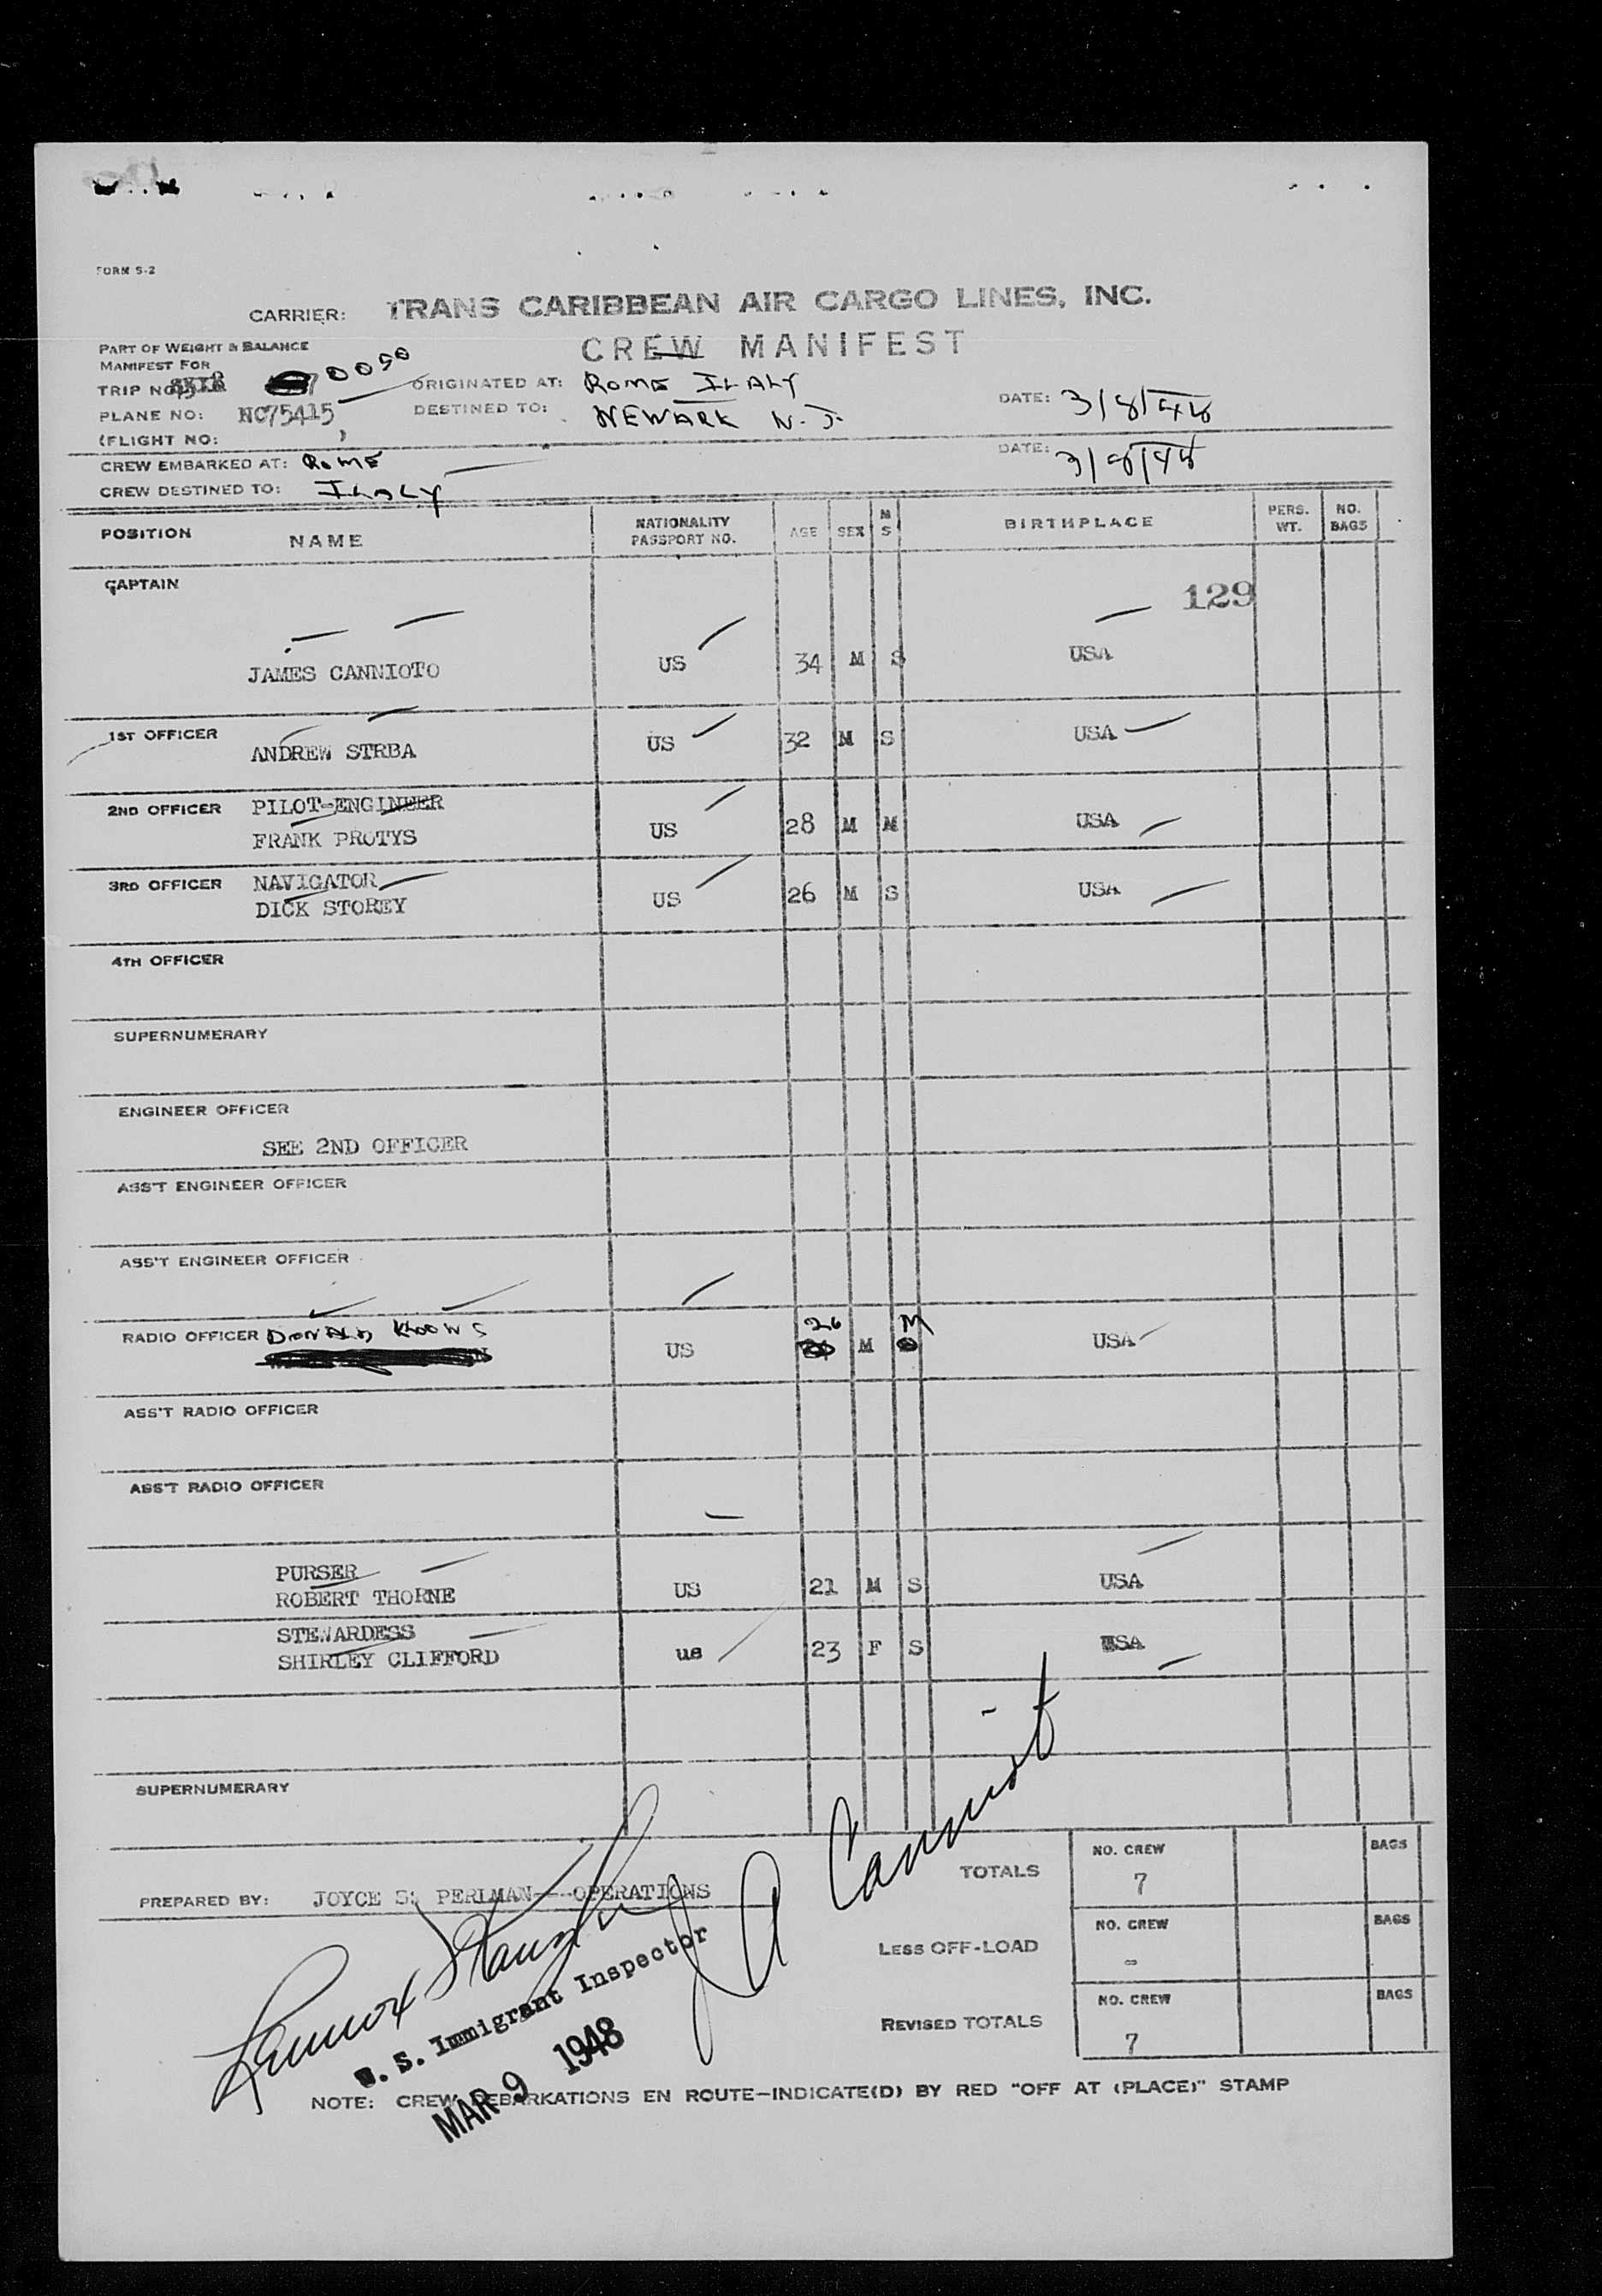 FORM S-2
CARRIER: TRANS CARIBBEAN AIR CARGO LINES, INC.
CREW MANIFEST
PART OF WEIGHT & BALANCE
MANIFEST FOR
TRIP NO. 0090 ORIGINATED AT: ROME ITALY DATE: 3/8/48
PLANE NO: NC75415 DESTINED TO: NEWARK N.J.
(FLIGHT NO: ) DATE: 3/8/48
CREW EMBARKED AT: ROME
CREW DESTINED TO: ITALY
POSITION NAME NATIONALITY PASSPORT NO. AGE SEX M S BIRTHPLACE PERS. WT. NO. BAGS
CAPTAIN 129
JAMES CANNIOTO US 34 M S USA
1ST OFFICER ANDREW STRBA US 32 M S USA
2ND OFFICER PILOT-ENGINEER
FRANK PROTYS US 28 M M USA
3RD OFFICER NAVIGATOR
DICK STOREY US 26 M S USA
4TH OFFICER
SUPERNUMERARY
ENGINEER OFFICER
SEE 2ND OFFICER
ASS'T ENGINEER OFFICER
ASS'T ENGINEER OFFICER
RADIO OFFICER DONALD US 26 M M USA
ASS'T RADIO OFFICER
ASS'T RADIO OFFICER
PURSER
ROBERT THORNE US 21 M S USA
STEWARDESS
SHIRLEY CLIFFORD us 23 F S USA
SUPERNUMERARY
PREPARED BY: JOYCE S. PERLMAN--OPERATIONS
TOTALS NO. CREW 7 BAGS
LESS OFF-LOAD NO. CREW - BAGS
REVISED TOTALS NO. CREW 7 BAGS
U. S. Immigrant Inspector
MAR 9 1948
NOTE: CREW DEBARKATIONS EN ROUTE-INDICATE(D) BY RED "OFF AT (PLACE)" STAMP